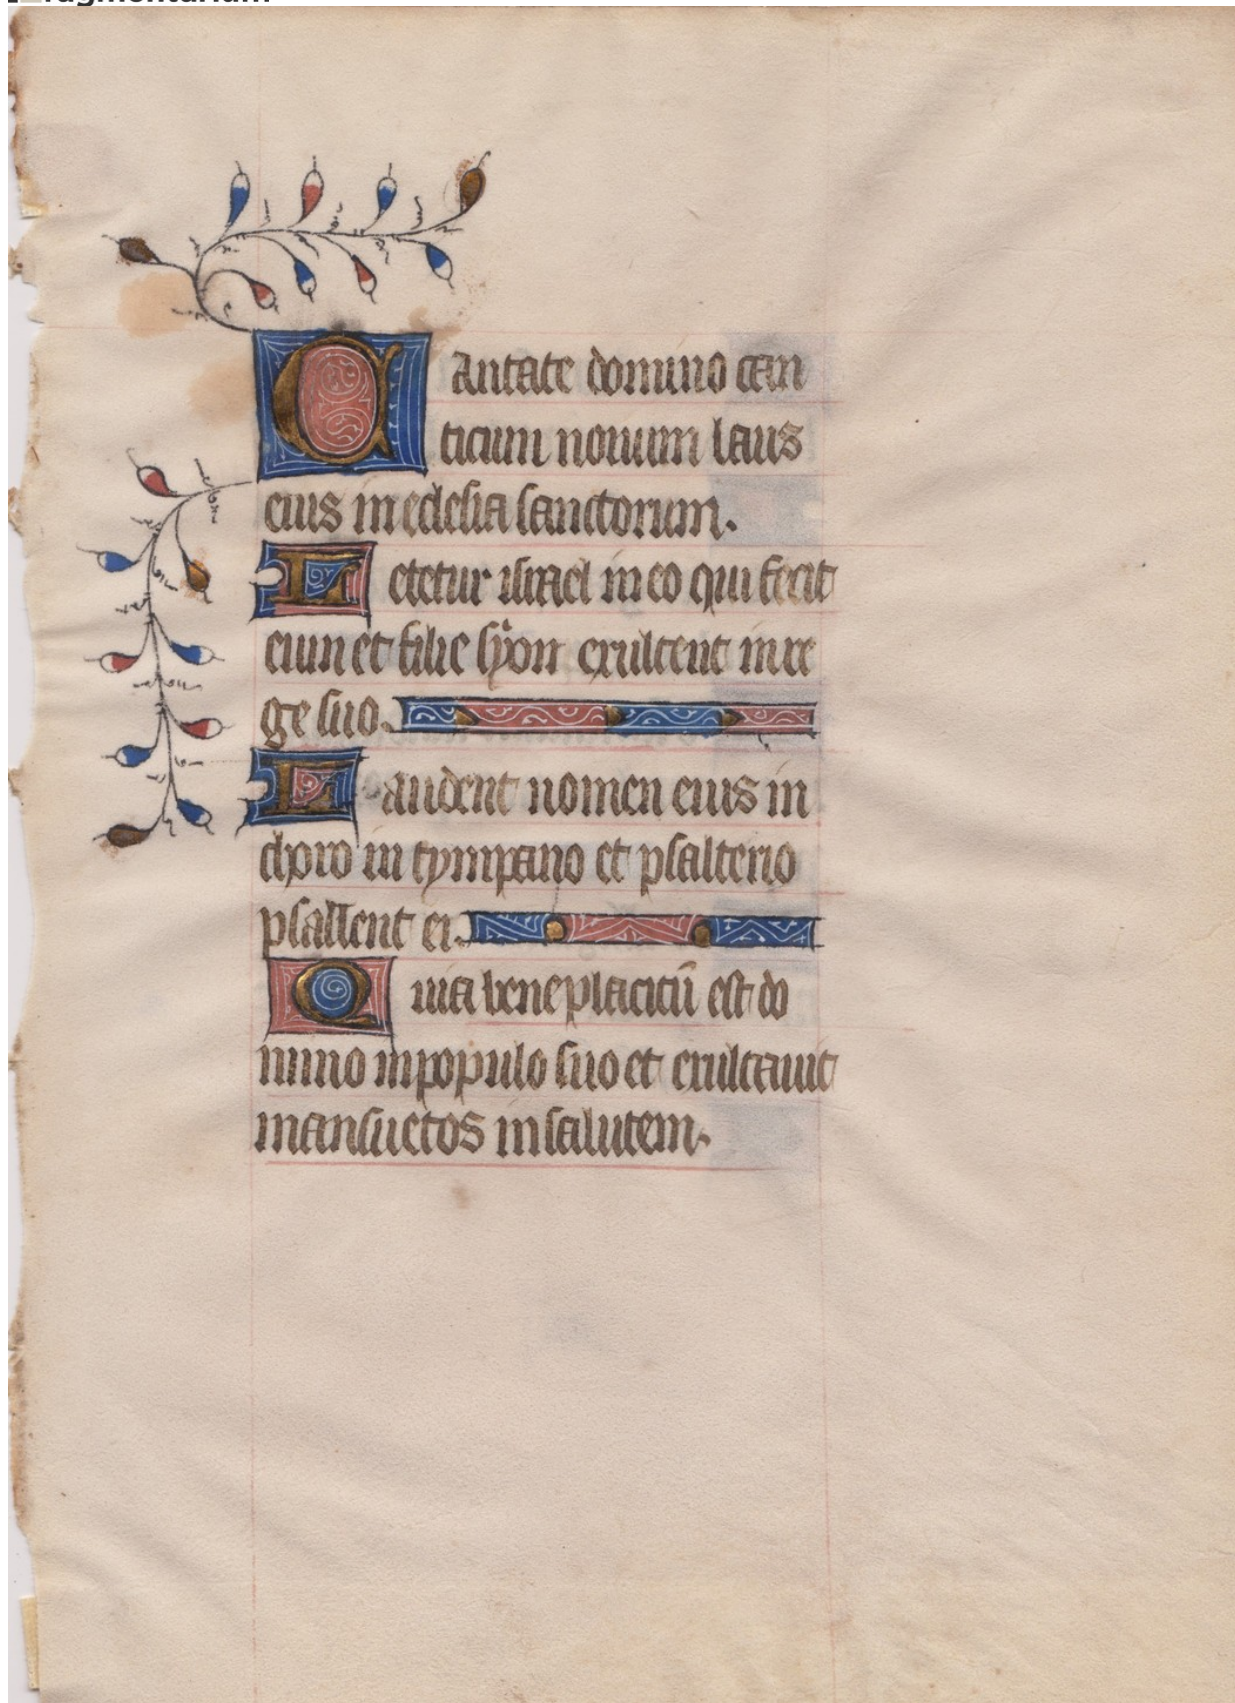 Cantate domino can
ticum nouum laus
eius in ecclesia sanctorum.
Letetur israel in eo qui fecit
eum et filie syon exultent in re
ge suo.
Laudent nomen eius in
choro in tympano et psalterio
psallent ei.
Quia beneplacitū est do
mino in populo suo et exultauit
mansuetos in salutem.